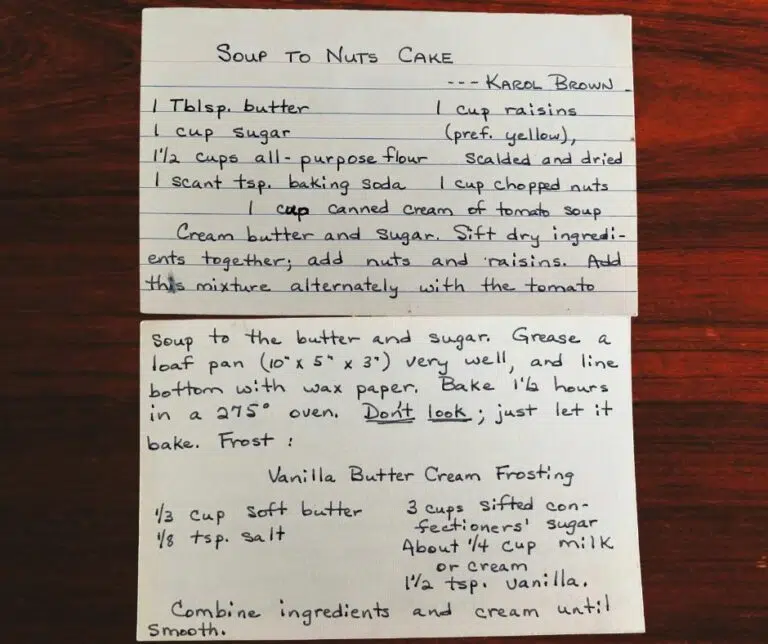 Soup to Nuts Cake
--- Karol Brown
1 Tblsp. butter
1 cup sugar
1 1/2 cups all-purpose flour
1 scant tsp. baking soda
1 cup raisins
(pref. yellow),
scalded and dried
1 cup chopped nuts
1 cup canned cream of tomato soup
Cream butter and sugar. Sift dry ingredi-
ents together; add nuts and raisins. Add
this mixture alternately with the tomato
soup to the butter and sugar. Grease a
loaf pan (10" x 5" x 3") very well, and line
bottom with wax paper. Bake 1 1/2 hours
in a 275° oven. Don't look; just let it
bake. Frost:
Vanilla Butter Cream Frosting
1/3 cup soft butter
1/8 tsp. salt
3 cups sifted con-
fectioners' sugar
About 1/4 cup milk
or cream
1 1/2 tsp. vanilla.
Combine ingredients and cream until
smooth.